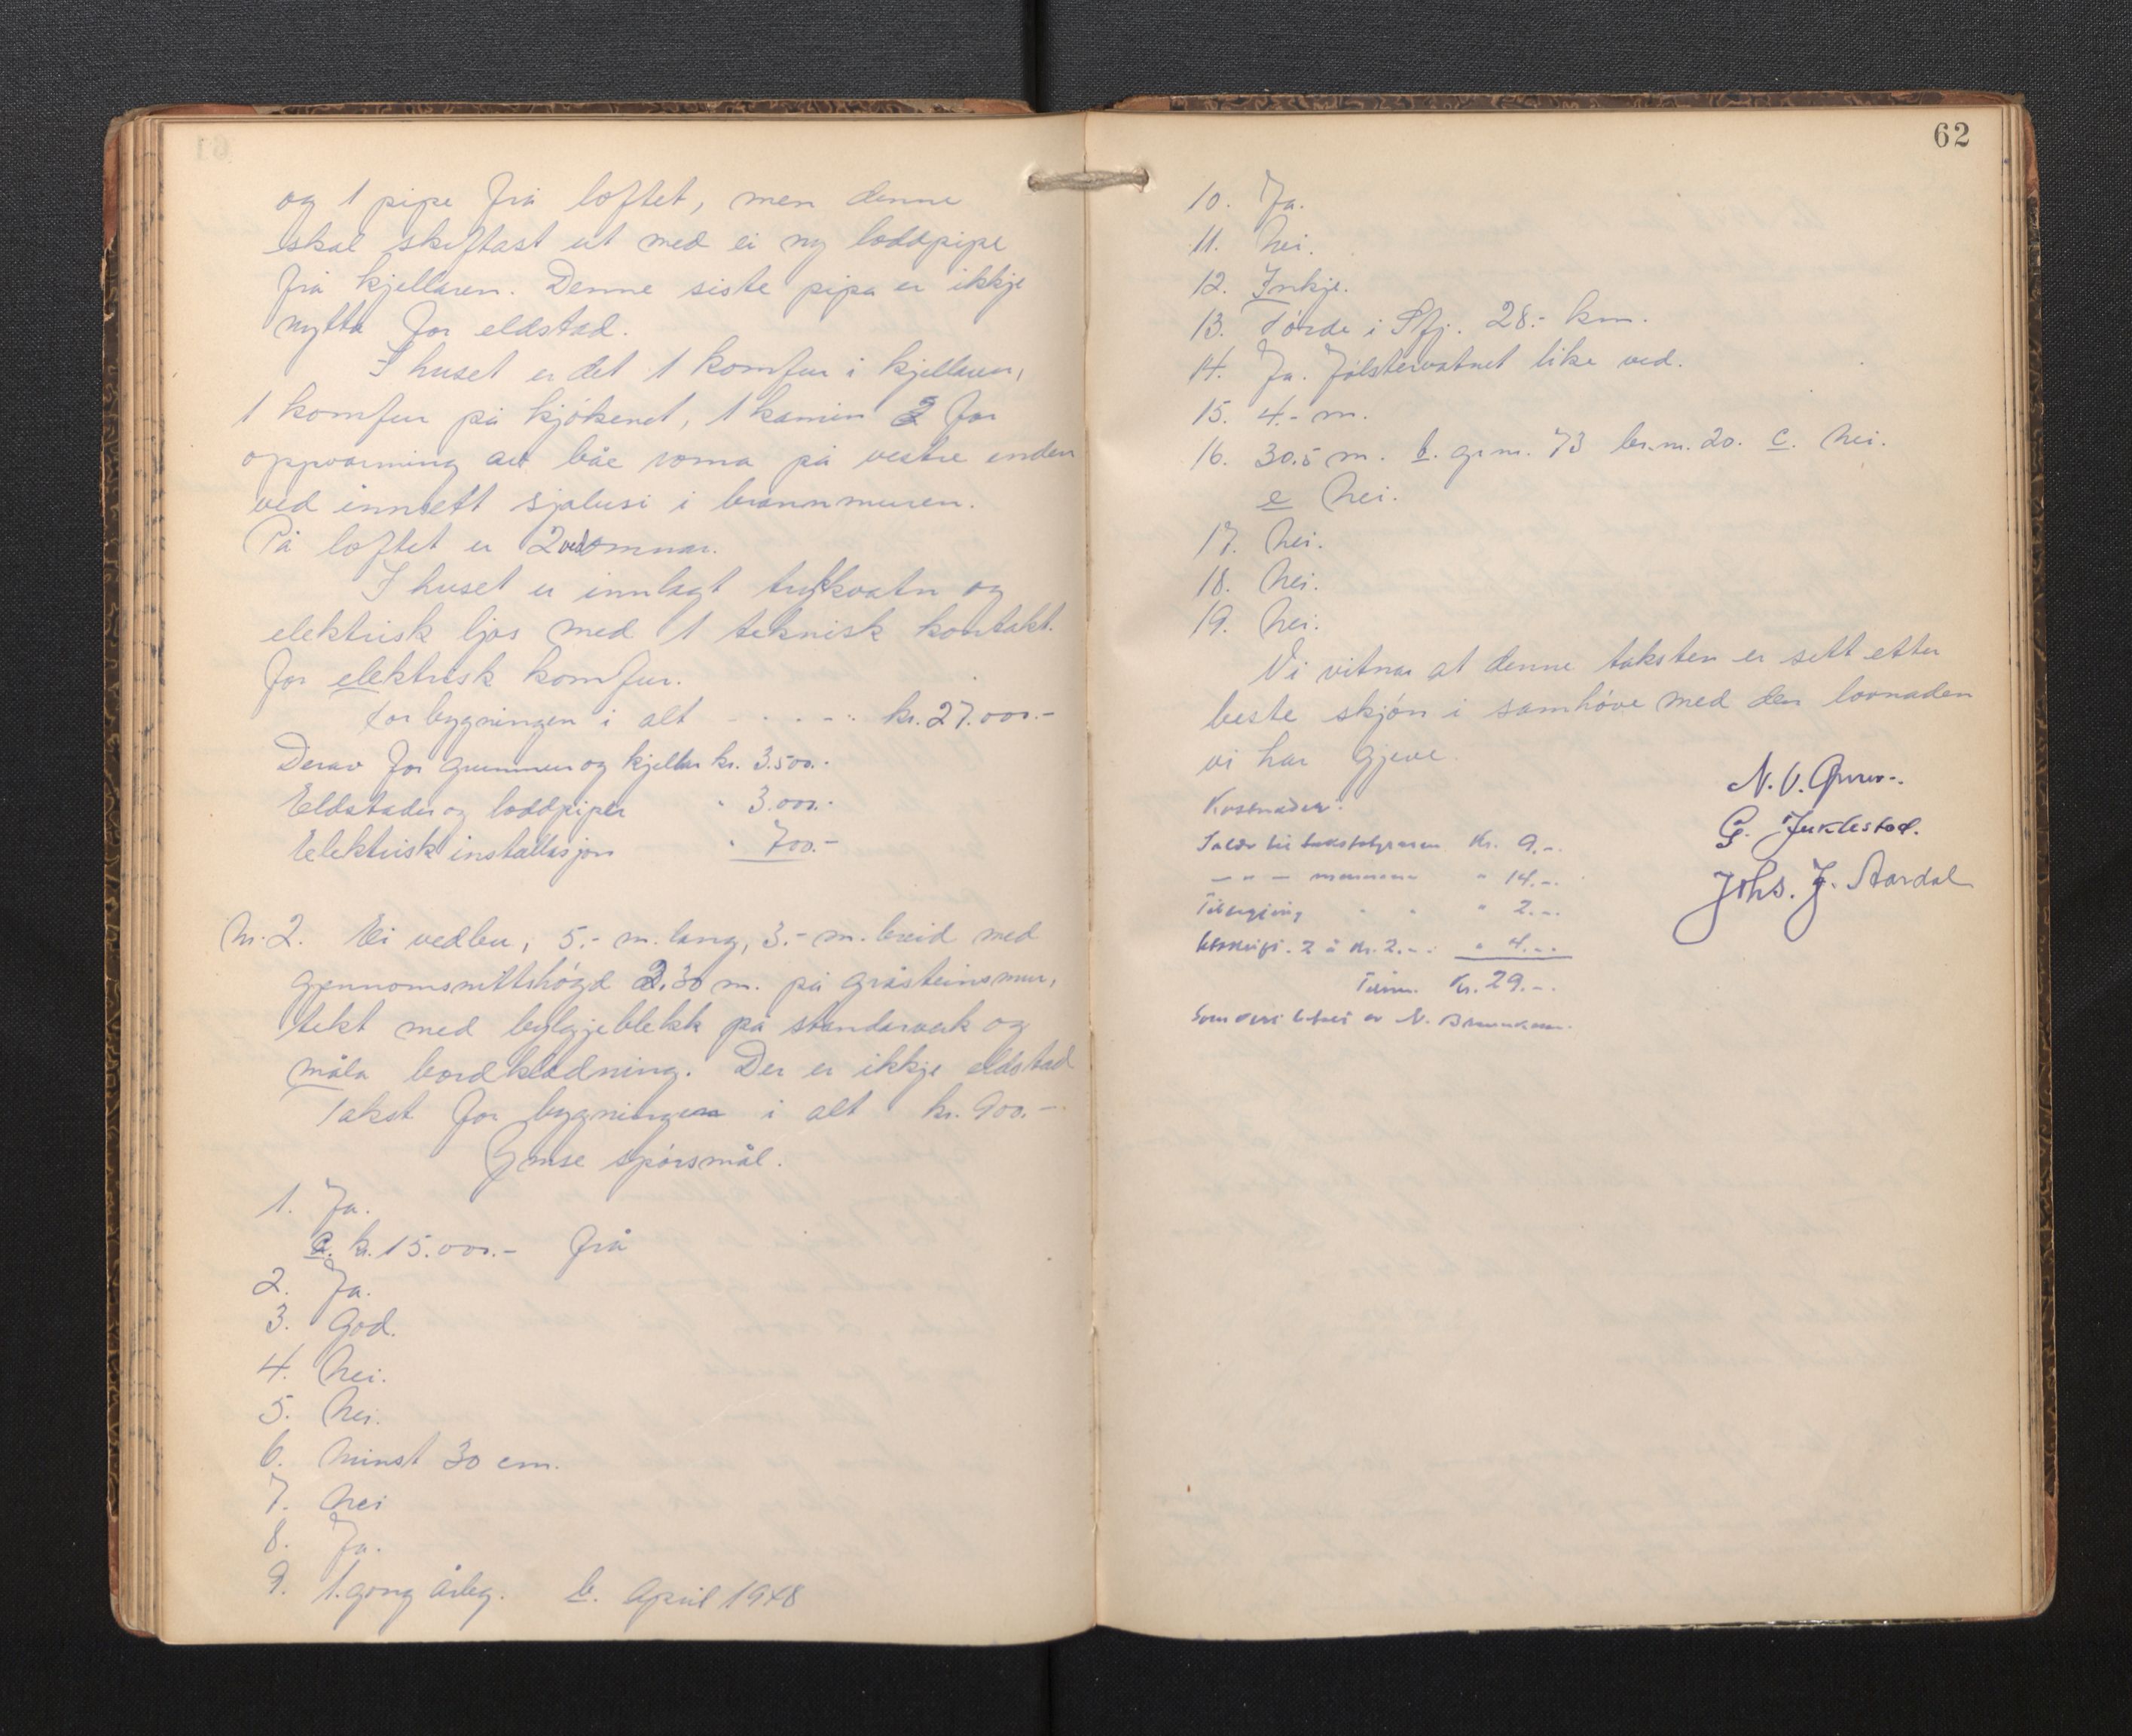 og 1 pipe frå loftet, men denne
skal skiftast ut med ei ny loddpipe
frå kjellaren. Denne siste pipa er ikkje
nytta for eldstad.
I huset er det 1 komfur i kjellaren,
1 komfur på kjøkenet, 1 kamin for
oppvarming av båe roma på vestre enden
ved innsett sjalusi i brannmuren.
På loftet er 2 vedomnar.
I huset er innlagt trykkvatn og
elektrisk ljos med 1 teknisk kontakt
for elektrisk komfur.
For bygningen i alt - - - - - kr. 27.000.-
Derav for grunnmur og kjellar kr. 3.500.-
Eldstader og loddpiper " 3.000.-
Elektrisk installasjon " 700.-
Nr. 2. Ei vedbu, 5.- m. lang, 3.- m. breid med
gjennomsnittshøgd 2.30 m. på gråsteinsmur,
tekt med bylgjeblekk på standarverk og
måla bordkledning. Der er ikkje eldstad
Takst for bygningen i alt kr. 900.-
Ymse spørsmål.
1. Ja.
a. kr. 15.000.- frå
2. Ja.
3. God.
4. Nei.
5. Nei.
6. Minst 30 cm.
7. Nei
8. Ja.
9. 1. gong årleg. b. April 1948
62
10. Ja.
11. Nei.
12. Inkje.
13. Førde i Sfj. 28.- km.
14. Ja. Jølstervatnet like ved.
15. 4.- m.
16. 30.5 m. b. gr.nr. 73 br.nr. 20. c. Nei.
e Nei.
17. Nei.
18. Nei.
19. Nei.
Vi vitnar at denne taksten er sett etter
beste skjøn i samhøve med den lovnaden
vi har gjeve.
Kostnader:
Kr. 9.-.
" 14.-.
" 2.-.
Utskrift. 2 à kr. 2.-. " 4.-.
Kr. 29.-.
N. O.
G. Juklestad.
Johs. J. Aardal